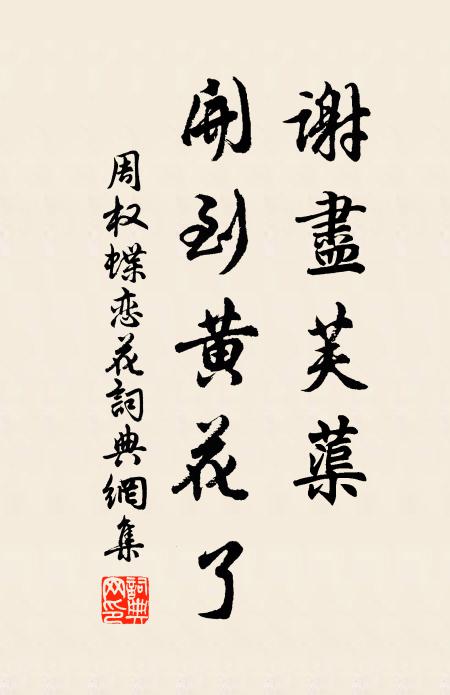 谢盡芙蕖
開到黄花了
周权蝶恋花詞典網集
詞典網印